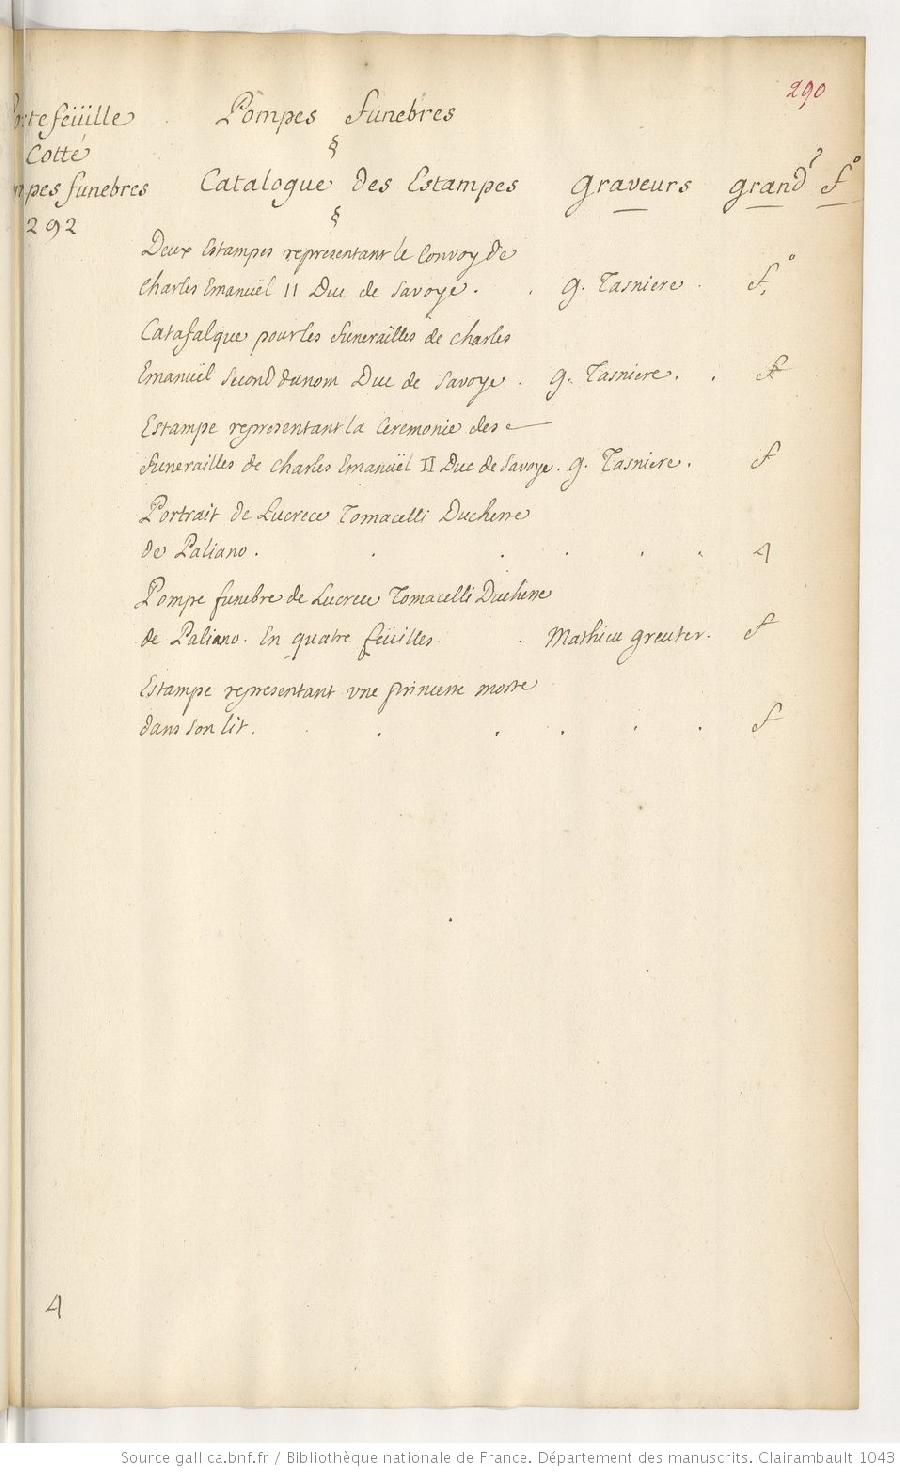 290
tefeüille Pompes funebres
Cotté §
pes funebres Catalogue des Estampes Graveurs grand.r f.o
292 §
Deux Estampes representant le Convoy de
Charles Emanuel II Duc de Savoye . . G. Tasniere . f.o
Catafalque pour les funerailles de Charles
Emanuël Second du nom Duc de Savoye . G. Tasniere . . f
Estampe representant la Ceremonie des
funerailles de Charles Emanuël II Duc de Savoye . G. Tasniere . f
Portrait de Lucrece Tomacelli Duchesse
de Paliano . . . . . . 4
Pompe funebre de Lucrece Tomacelli Duchesse
de Paliano . En quatre feüilles . Mathieu Greuter . f
Estampe representant vne princesse morte
dans son lit . . . . . . f
4
Source gallica.bnf.fr / Bibliothèque nationale de France. Département des manuscrits. Clairambault 1043